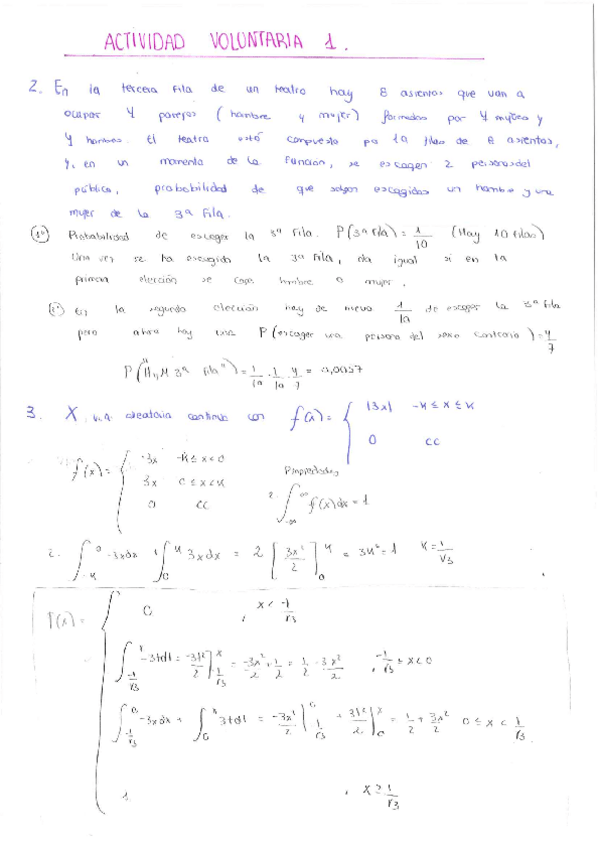 ACTIVIDAD VOLUNTARIA 1.
2. En la tercera fila de un teatro hay 8 asientos que van a
ocupar 4 parejas (hombre y mujer) formadas por 4 mujeres y
4 hombres. El teatro está compuesto por 10 filas de 8 asientos,
y, en un momento de la función, se escogen 2 personas del
público, probabilidad de que salgan escogidos un hombre y una
mujer de la 3ª fila.
1º Probabilidad de escoger la 3ª fila. P(3ª fila) = 1/10 (Hay 10 filas)
Una vez se ha escogido la 3ª fila, da igual si en la
primera elección se coge hombre o mujer.
2º En la segunda elección hay de nuevo 1/10 de escoger la 3ª fila
pero ahora hay una P(escoger una persona del sexo contrario) = 4/7
P("H y M 3ª fila") = 1/10 · 1/10 · 4/7 = 0,0057
3. X v.a. aleatoria continua con f(x) = { |3x| -K ≤ x ≤ K
0 cc
f(x) = { -3x -K ≤ x < 0
3x 0 ≤ x < K
0 cc
Propiedades
2. ∫_{-∞}^{∞} f(x)dx = 1
2. ∫_{-K}^{0} -3xdx + ∫_{0}^{K} 3xdx = 2 [3x²/2]_{0}^{K} = 3K² = 1 K = 1/√3
F(x) = { 0 , x < -1/√3
∫_{-1/√3}^{x} -3tdt = -3t²/2 ]_{-1/√3}^{x} = -3x²/2 + 1/2 = 1/2 - 3x²/2 , -1/√3 ≤ x < 0
∫_{-1/√3}^{0} -3xdx + ∫_{0}^{x} 3tdt = -3x²/2 ]_{1/√3}^{0} + 3t²/2 ]_{0}^{x} = 1/2 + 3x²/2 0 ≤ x < 1/√3
1 , x ≥ 1/√3